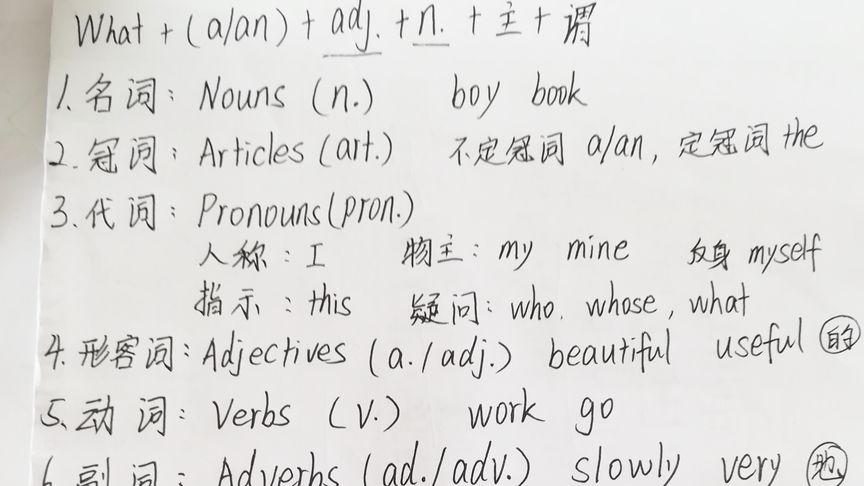 What + (a/an) + adj. + n. + 主 + 谓
1. 名词: Nouns (n.) boy book
2. 冠词: Articles (art.) 不定冠词 a/an, 定冠词 the
3. 代词: Pronouns (pron.)
人称: I 物主: my mine 反身 myself
指示: this 疑问: who. whose, what
4. 形容词: Adjectives (a./adj.) beautiful useful 的
5. 动词: Verbs (v.) work go
6. 副词: Adverbs (ad./adv.) slowly very 地